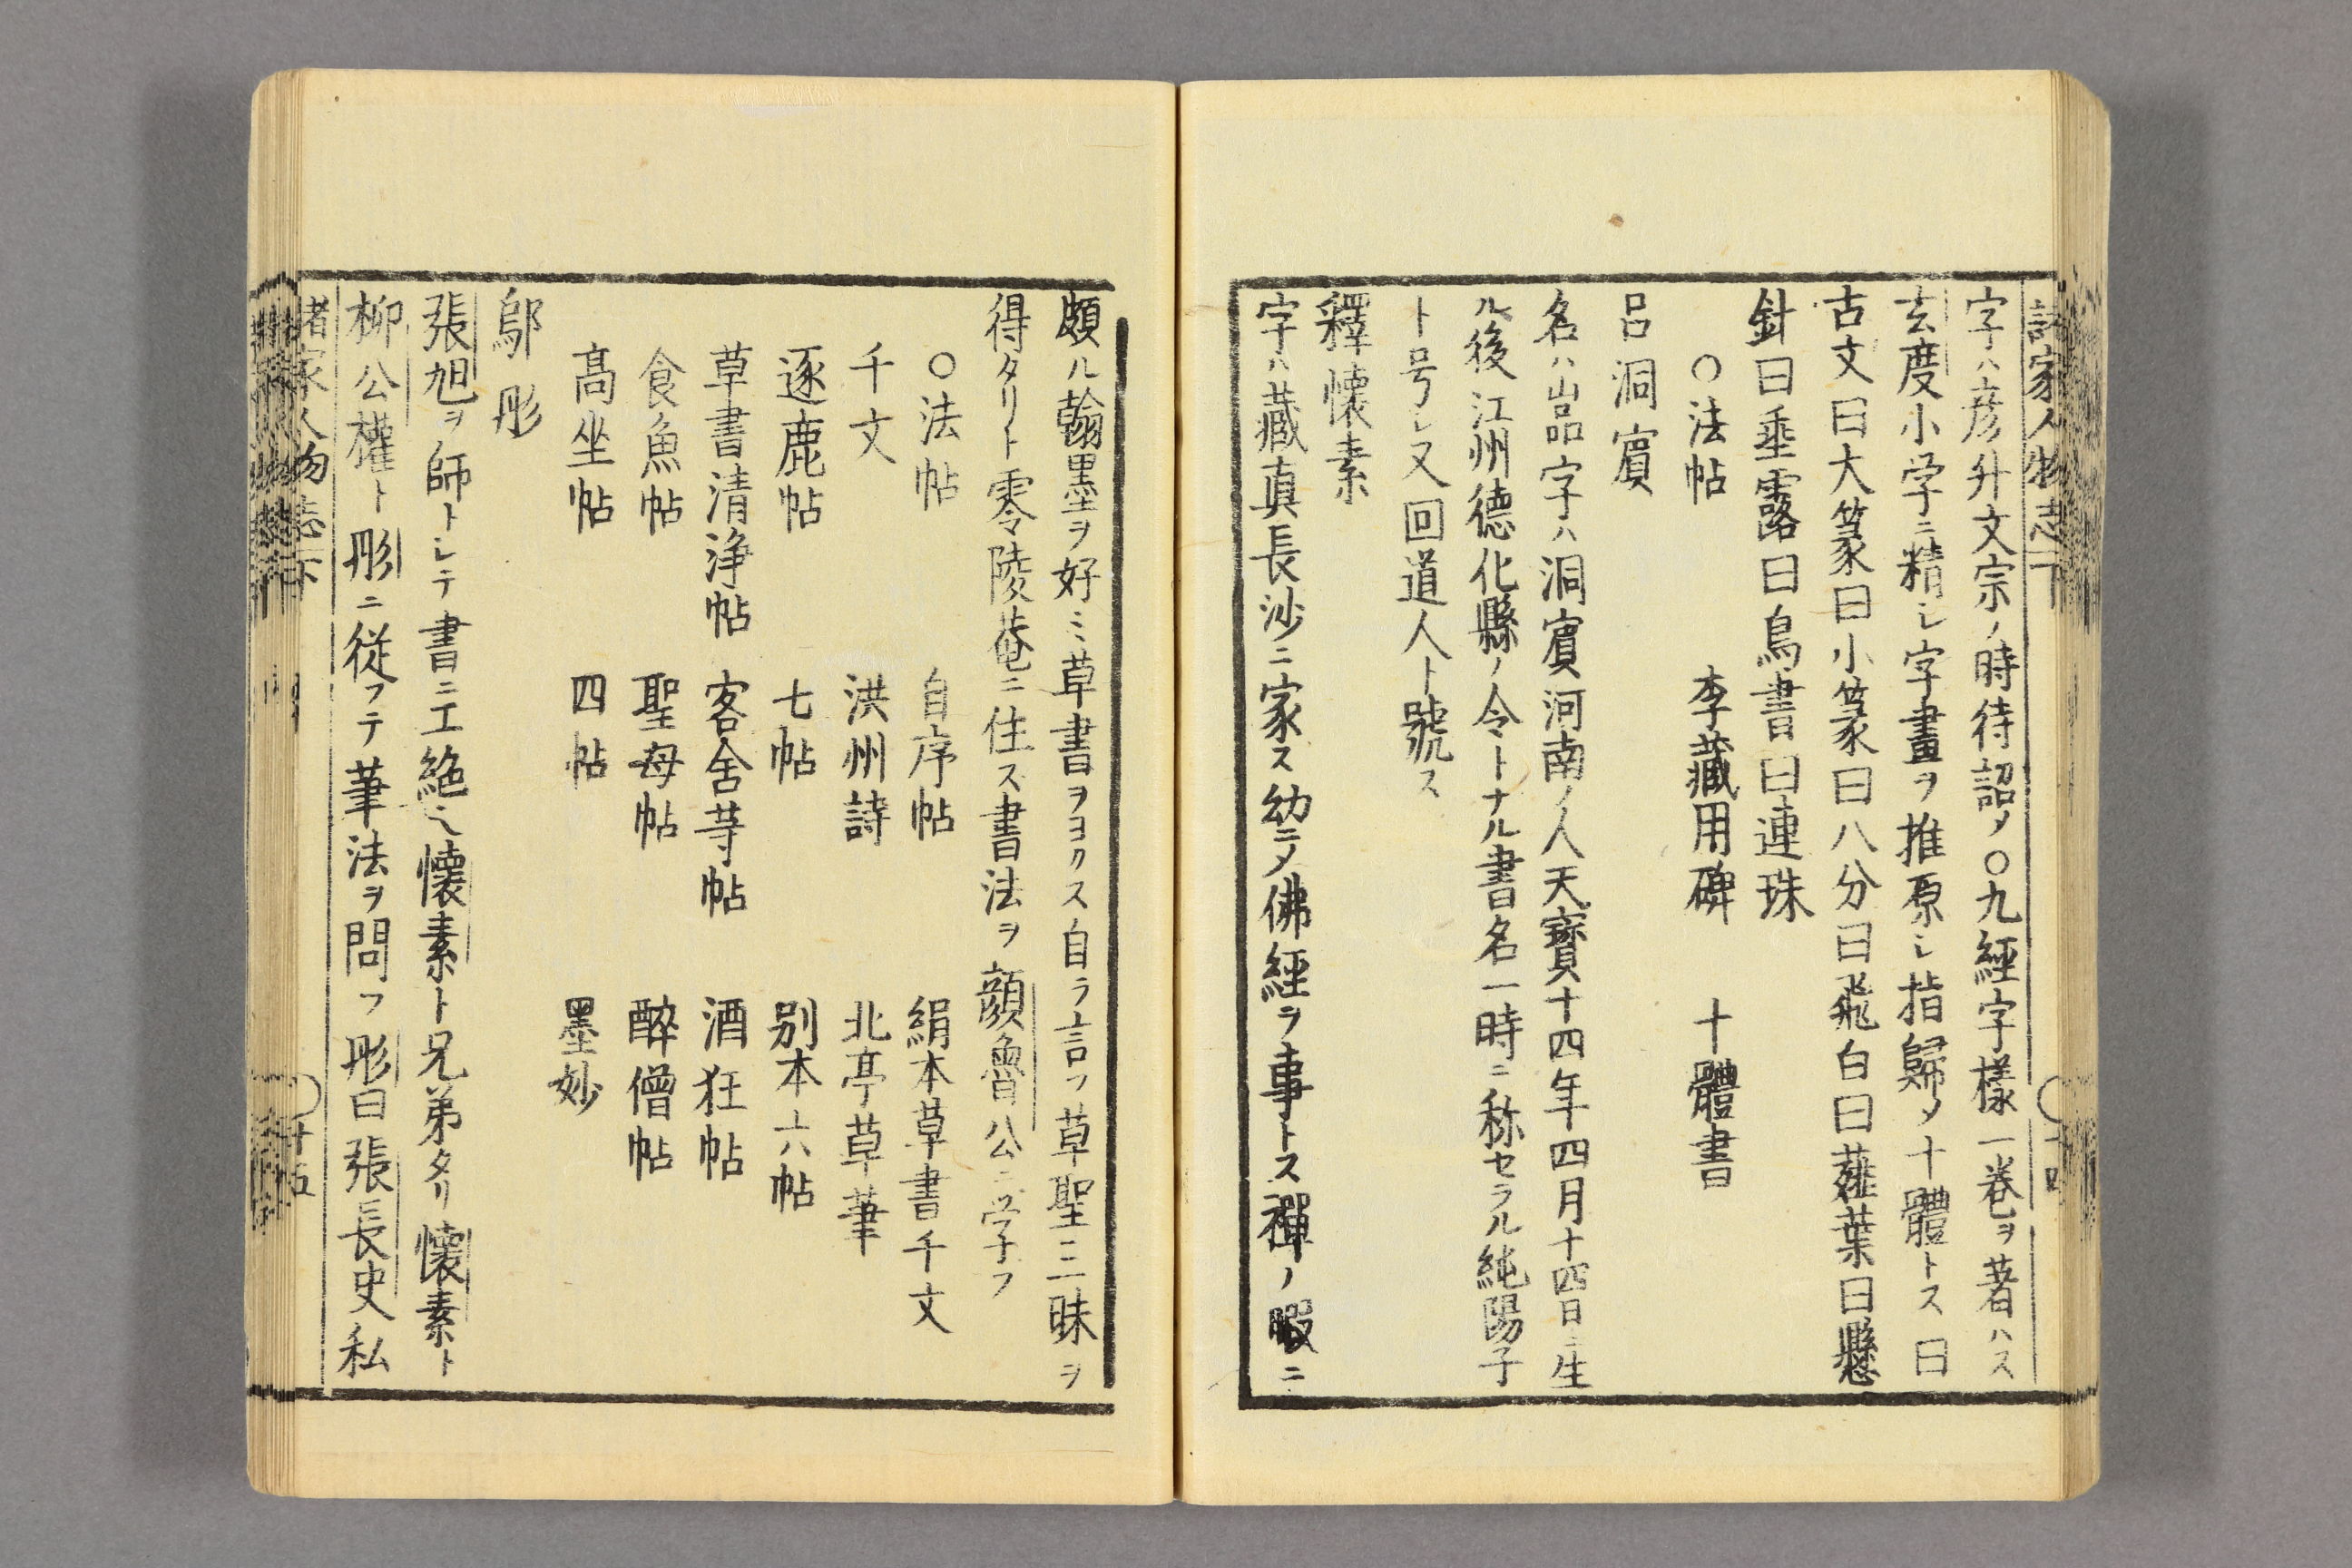 諸家人物志下 〇十四
字ハ彦升文宗ノ時待詔ノ〇九經字樣一巻ヲ著ハス
玄度小学ニ精シ字畫ヲ推原シ指歸メ十體トス曰
古文曰大篆曰小篆曰八分曰飛白曰薤葉曰懸
針曰垂露曰鳥書曰連珠
〇法帖 李藏用碑 十體書
呂洞賓
名ハ嵒字ハ洞賓河南ノ人天寶十四年四月十四日ニ生
ル後江州德化縣ノ令トナル書名一時ニ称セラル純陽子
ト号シ又回道人ト號ス
釋懷素
字ハ藏真長沙ニ家ス幼ニメ佛經ヲ事トス禪ノ暇ニ
頗ル翰墨ヲ好ミ草書ヲヨクス自ラ言フ草聖三昧ヲ
得タリト零陵菴ニ住ス書法ヲ顔魯公ニ学フ
〇法帖 自序帖 絹本草書千文
千文 洪州詩 北亭草筆
逐鹿帖 七帖 別本六帖
草書清浄帖 客舍䓁帖 酒狂帖
食魚帖 聖母帖 醉僧帖
高坐帖 四帖 墨妙
鄔彤
張旭ヲ師トシテ書ニ工絶ミ懷素ト兄弟タリ懷素ト
柳公權ト彤ニ従フテ筆法ヲ問フ彤曰張長史私
諸家人物志下 〇十五